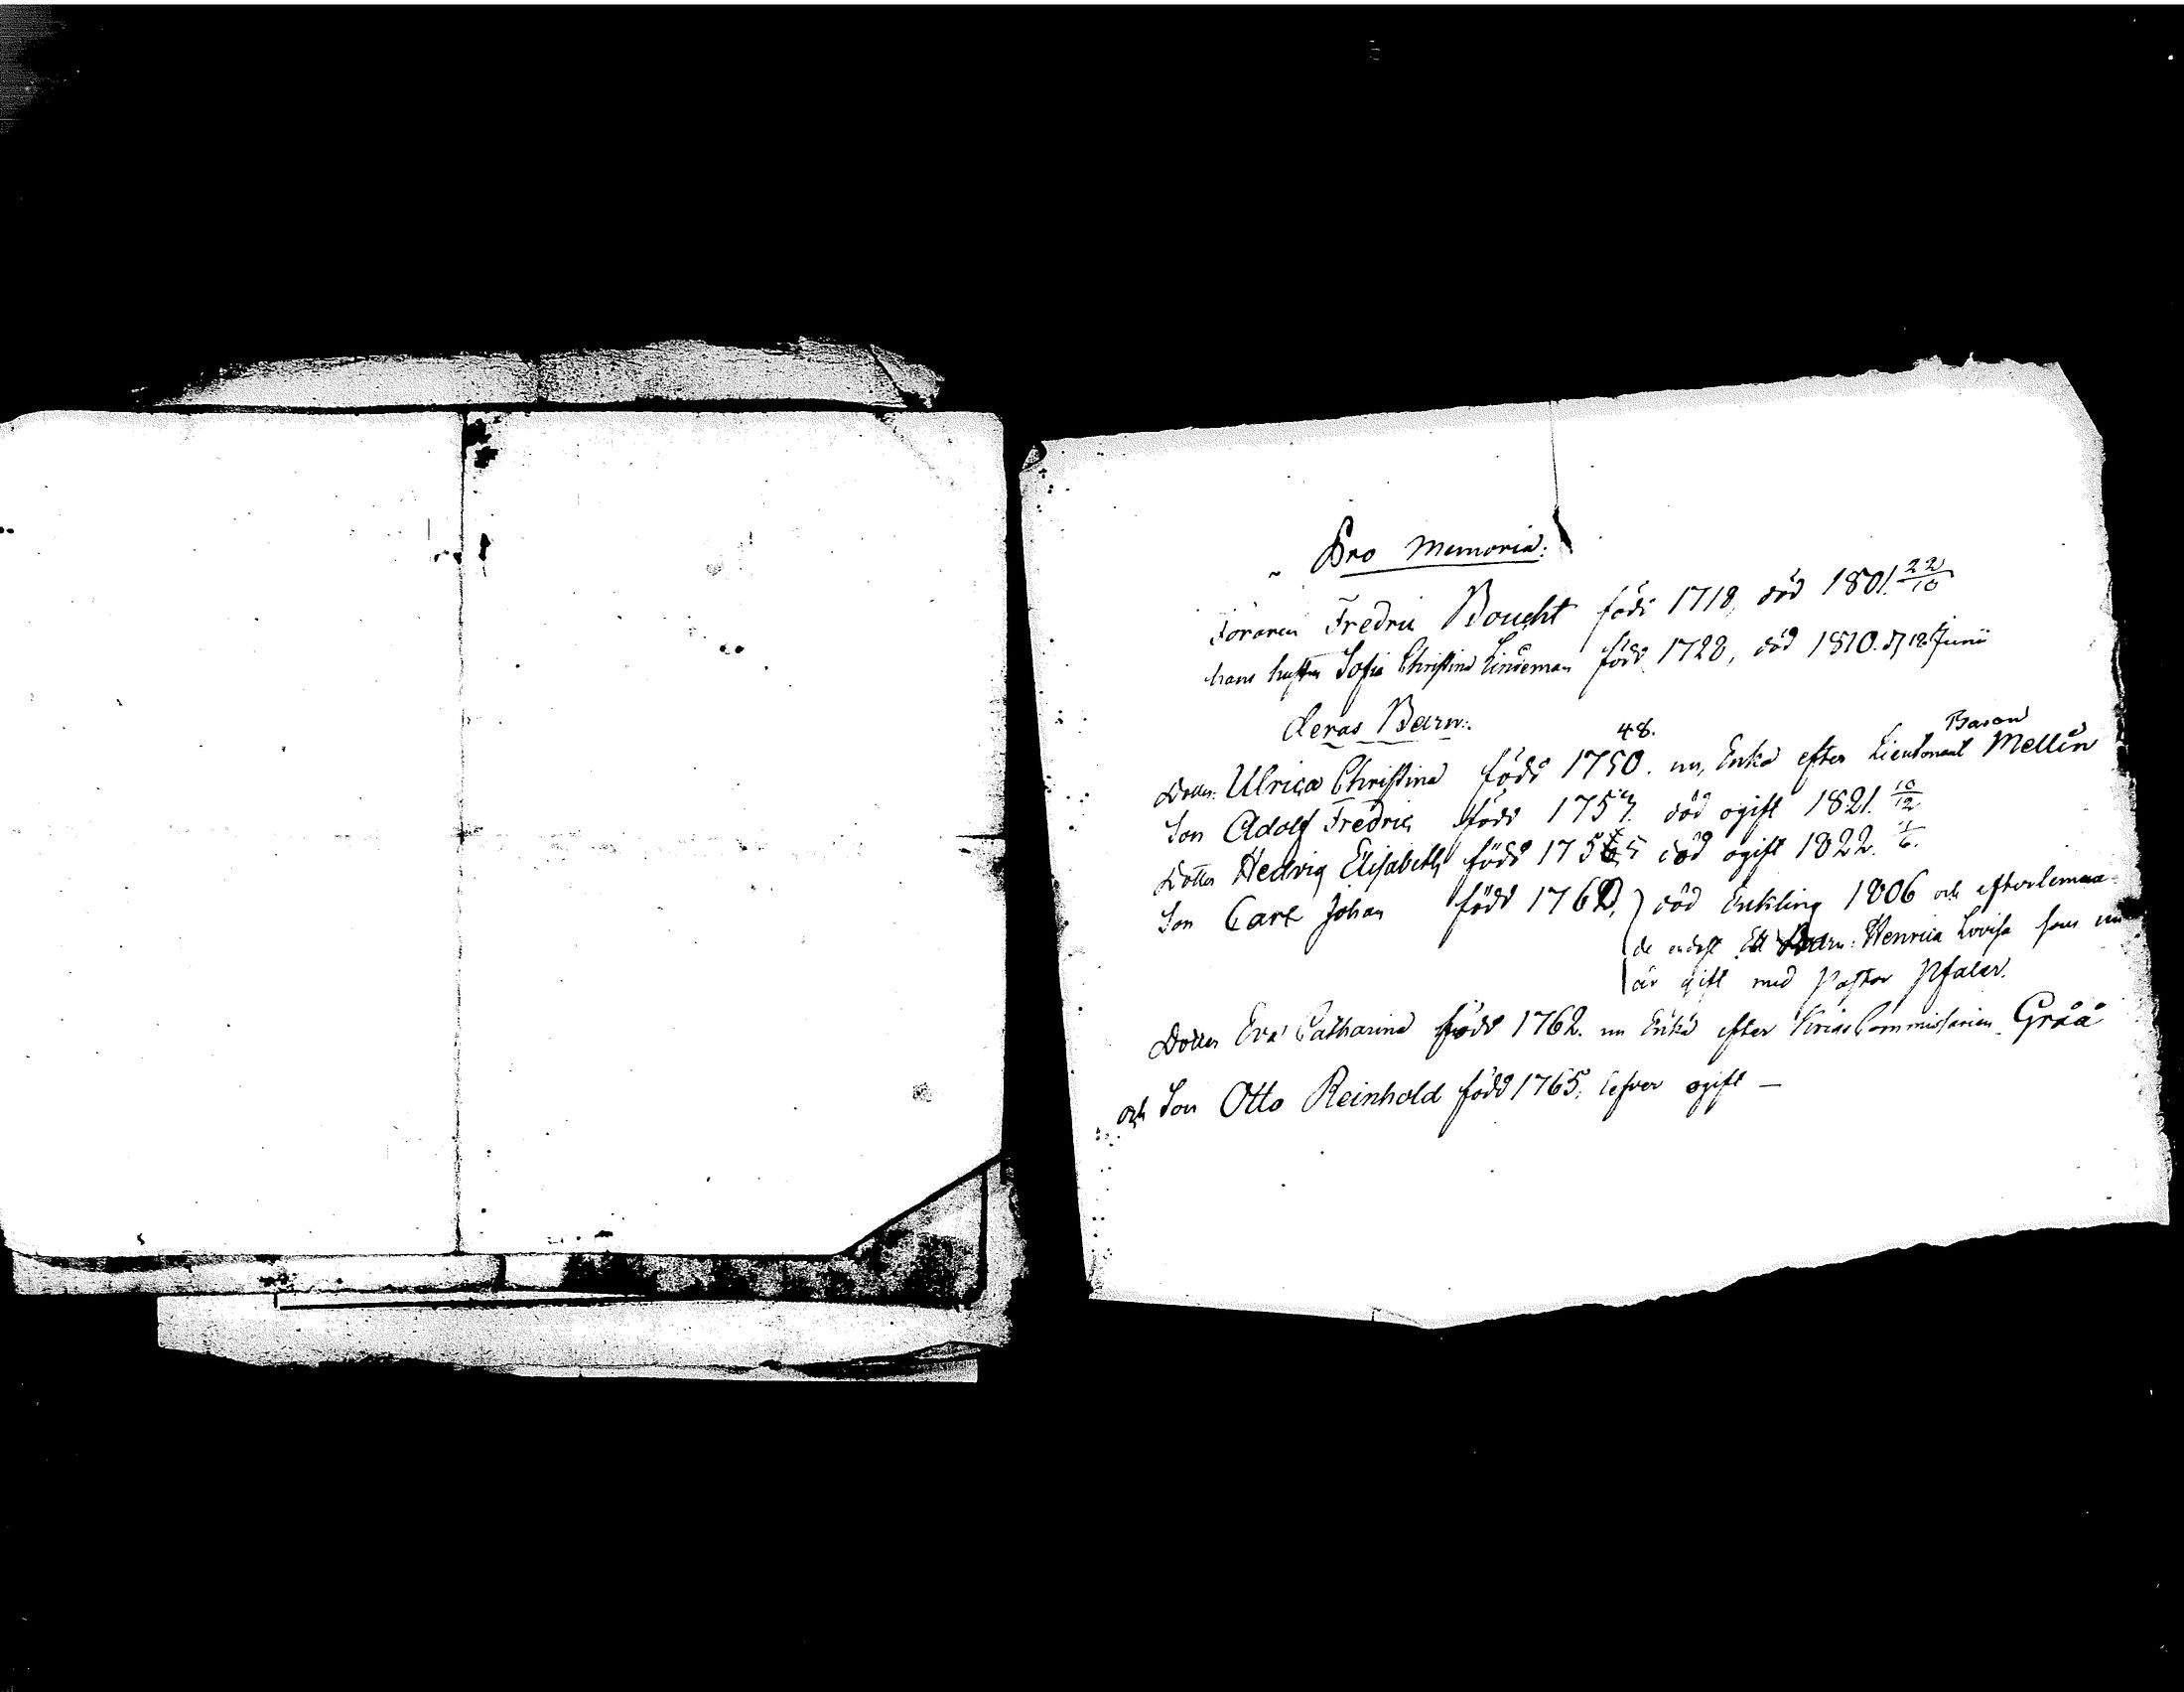 Pro Memoria:
Föraren Fredric Boucht född 1718, död 1801. 22/10
hans hustru Sofia Christina Lindeman född 1728, död 1810. d 18 Junii
deras Barn:
48. Baron
Dotter: Ulrica Christina född 1750. nu, Enka efter Lieutenant Mellin
Son Adolf Fredric född 1753. död ogift 1821. 10/12
Dotter Hedvig Elisabeth född 1755 död ogift 1822. 1/6.
Son Carl Johan född 1760, död Enkling 1806 och efterlemna
de endast Ett Barn: Henrica Lovisa som nu
är gift med Pastor Pfaler.
Dotter Eva Catharina född 1762. nu Enka efter KrigsCommissarien Gråå
och Son Otto Reinhold född 1765, lefver ogift —